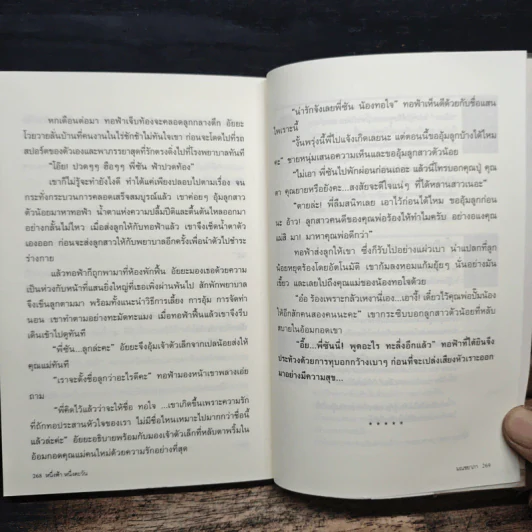 หกเดือนต่อมา ทอฟ้าเจ็บท้องจะคลอดลูกกลางดึก อัยยะ
โวยวายลั่นบ้านที่คนงานในไร่ชักช้าไม่ทันใจเขา ก่อนจะโดดไปที่รถ
สปอร์ตของตัวเองและพาภรรยาสุดที่รักตรงดิ่งไปที่โรงพยาบาลทันที
“โอ๊ย! ปวดๆๆ ฮือๆๆ พี่ซัน ฟ้าปวดท้อง”
เขาก็ไม่รู้จะทำยังไงดี ทำได้แค่เพียงปลอบไปตามเรื่อง จน
กระทั่งกระบวนการคลอดเสร็จสมบูรณ์แล้ว เขาค่อยๆ อุ้มลูกสาว
ตัวน้อยมาหาทอฟ้า น้ำตาแห่งความปลื้มปีติและตื้นตันไหลออกมา
อย่างกลั้นไม่ไหว เมื่อส่งลูกให้กับทอฟ้าแล้ว เขาจึงเช็ดน้ำตาตัว
เองออก ก่อนจะส่งลูกสาวให้กับพยาบาลอีกครั้งเพื่อนำตัวไปชำระ
ร่างกาย
แล้วทอฟ้าก็ถูกพามาที่ห้องพักฟื้น อัยยะมองเธอด้วยความ
เป็นห่วงกับหน้าที่แสนยิ่งใหญ่ที่เธอเพิ่งผ่านพ้นไป สักพักพยาบาล
จึงเข็นลูกตามมา พร้อมทั้งแนะนำวิธีการเลี้ยง การอุ้ม การจัดท่า
นอน เขาทำตามอย่างทะมัดทะแมง เมื่อทอฟ้าฟื้นแล้วเขาจึงรีบ
เดินเข้าไปดูทันที
“พี่ซัน...ลูกล่ะคะ” อัยยะจึงอุ้มเจ้าตัวเล็กจากเปลน้อยส่งให้
คุณแม่ทันที
“เราจะตั้งชื่อลูกว่าอะไรดีคะ” ทอฟ้ามองหน้าเขาพลางเอ่ย
ถาม
“พี่คิดไว้แล้วว่าจะให้ชื่อ ทอใจ ...เขาเกิดขึ้นเพราะความรัก
ที่ถักทอประสานหัวใจของเรา ไม่มีชื่อไหนเหมาะไปมากกว่าชื่อนี้
แล้วล่ะค่ะ” อัยยะอธิบายพร้อมกับมองเจ้าตัวเล็กที่หลับตาพริ้มใน
อ้อมกอดคุณแม่คนใหม่ด้วยความรักอย่างที่สุด
268 หนึ่งฟ้า หนึ่งตะวัน
“น่ารักจังเลยพี่ซัน น้องทอใจ” ทอฟ้าเห็นดีด้วยกับชื่อแสน
ไพเราะนี้
“งั้นพรุ่งนี้พี่ไปแจ้งเกิดเลยนะ แต่ตอนนี้ขออุ้มลูกบ้างได้ไหม
คะ” ชายหนุ่มเสนอความเห็นและขออุ้มลูกสาวตัวน้อย
“ไม่เอา พี่ซันไปพักผ่อนก่อนเถอะ แล้วนี่โทรบอกคุณปู่ คุณ
ตา คุณยายหรือยังคะ...สงสัยจะดีใจแน่ๆ ที่ได้หลานสาวเนอะ”
“ตายล่ะ! พี่ลืมสนิทเลย เอาไว้ก่อนได้ไหม ขออุ้มลูกก่อน
นะ อ้าว! ลูกสาวคนดีของคุณพ่อร้องไห้ทำไมครับ อย่างอแงคุณ
แม่สิ มา! มาหาคุณพ่อดีกว่า”
ทอฟ้าส่งลูกให้เขา ซึ่งก็รับไปอย่างแผ่วเบา น่าแปลกที่ลูก
น้อยหยุดร้องโดยอัตโนมัติ เขาก้มลงหอมแก้มอุ้ยๆ นั่นอย่างมัน
เขี้ยว และเลยไปถึงคุณแม่ของน้องทอใจด้วย
“อ๋อ ร้องเพราะกลัวเหงานี่เอง...เอางี้! เดี๋ยวไว้คุณพ่อปั๊มน้อง
ให้อีกสักคนสองคนนะคะ” เขากระซิบบอกลูกสาวตัวน้อยที่หลับ
สบายในอ้อมกอดเขา
“อี๊ย...พี่ซันนี่! พูดอะไร ทะลึ่งอีกแล้ว” ทอฟ้าที่ได้ยินจึง
ประท้วงด้วยการทุบอกกว้างเบาๆ ก่อนที่จะเปล่งเสียงหัวเราะออก
มาอย่างมีความสุข...
* * * * *
269